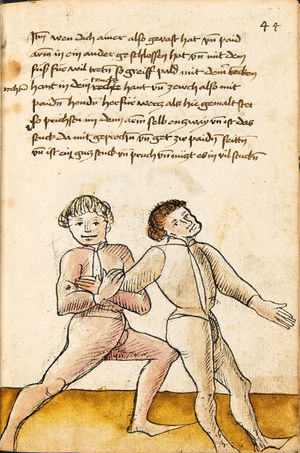 44
Itm wen dich ainer also gevast hat vn̄ paid
arm in ein ander geschlossen hat vn̄ mit dem
fuß für wil treten so greiff pald mit dem
hant in den hant vn̄ zeuch also mit
paiden henden her für wecz als hie gemalt stet
so prichstu im den arm selb enzway vn̄ ist das
stuck da mit geprochn vn̄ get zw paiden seitten
vn̄ ist ein gucz stuck vn̄ pruch vn̄ nüczt ob in vil stucken